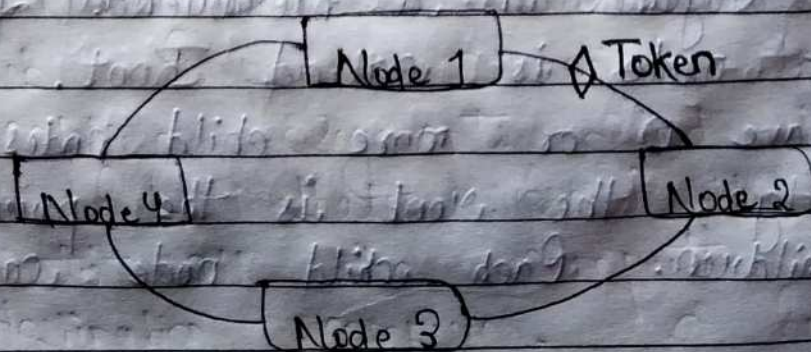 Node 1
Token
Node 4
Node 2
Node 3